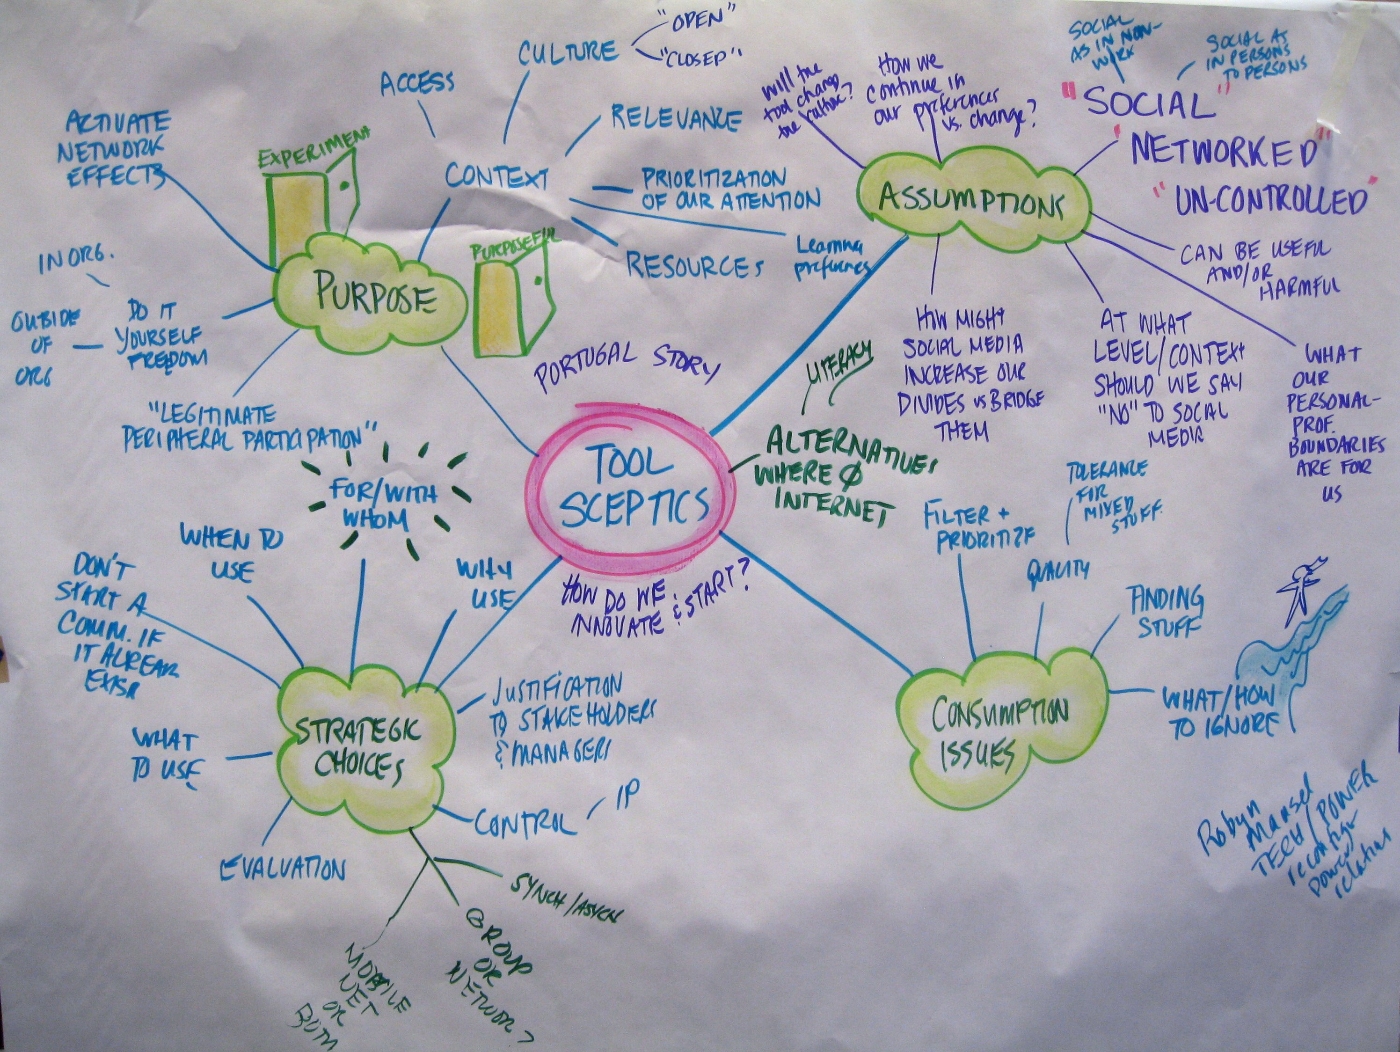 TOOL
SCEPTICS
PORTUGAL STORY
HOW DO WE
INNOVATE & START?
PURPOSE
EXPERIMENT
PURPOSEFUL
ACTIVATE
NETWORK
EFFECTS
IN ORG.
OUBIDE
OF
ORG
DO IT
YOURSELF
FREEDOM
"LEGITIMATE
PERIPHERAL PARTICIPATION"
CONTEXT
ACCESS
CULTURE
"OPEN"
"CLOSED"
RELEVANCE
PRIORITIZATION
OF OUR ATTENTION
Learning
preferences
RESOURCES
ASSUMPTIONS
Will the
tool change
the culture?
How we
continue in
our preferences
vs. change?
SOCIAL
AS IN NON-
WORK
SOCIAL AS
IN PERSONS
TO PERSONS
"SOCIAL"
"NETWORKED"
"UN-CONTROLLED"
CAN BE USEFUL
AND/OR
HARMFUL
WHAT
OUR
PERSONAL-
PROF.
BOUNDARIES
ARE FOR
US
AT WHAT
LEVEL/CONTEXT
SHOULD WE SAY
"NO" TO SOCIAL
MEDIA
HOW MIGHT
SOCIAL MEDIA
INCREASE OUR
DIVIDES VS BRIDGE
THEM
LITERACY
ALTERNATIVES
WHERE Ø
INTERNET
CONSUMPTION
ISSUES
FILTER +
PRIORITIZE
QUALITY
TOLERANCE
FOR
MIXED
STUFF
FINDING
STUFF
WHAT/HOW
TO IGNORE
Robyn
Mansel
TECH/POWER
reconfigr
power
relations
STRATEGIC
CHOICES
FOR/WITH
WHOM
WHEN TO
USE
WHY
USE
DON'T
START A
COMM. IF
IT ALREAR
EXISR
WHAT
TO USE
EVALUATION
JUSTIFICATION
TO STAKEHOLDERS
& MANAGERS
CONTROL
IP
SYNCH/ASYCN
GROUP
OR
NETWORK?
MOBILE
NET
OR
BOTH